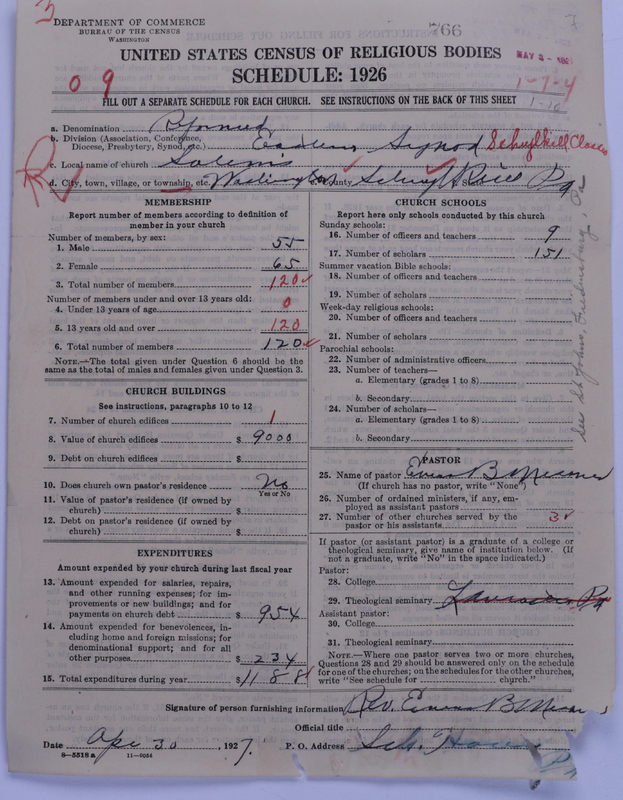 3
DEPARTMENT OF COMMERCE
BUREAU OF THE CENSUS
WASHINGTON
766
7
UNITED STATES CENSUS OF RELIGIOUS BODIES
SCHEDULE: 1926
MAY 3 - 192
0 9
1-7-4
1-10
FILL OUT A SEPARATE SCHEDULE FOR EACH CHURCH. SEE INSTRUCTIONS ON THE BACK OF THIS SHEET
a. Denomination Reformed
b. Division (Association, Conference, Diocese, Presbytery, Synod, etc.) Eastern Synod Schuylkill Classis
c. Local name of church Salems
R
d. City, town, village, or township, etc. Washington County Schuylkill State Pa
MEMBERSHIP
Report number of members according to definition of
member in your church
Number of members, by sex:
1. Male 55
2. Female 65
3. Total number of members 120
Number of members under and over 13 years old:
4. Under 13 years of age 0
5. 13 years old and over 120
6. Total number of members 120
NOTE.—The total given under Question 6 should be the
same as the total of males and females given under Question 3.
CHURCH BUILDINGS
See instructions, paragraphs 10 to 12
7. Number of church edifices 1
8. Value of church edifices $ 9000
9. Debt on church edifices $
10. Does church own pastor's residence? No
Yes or No
11. Value of pastor's residence (if owned by
church) $
12. Debt on pastor's residence (if owned by
church) $
EXPENDITURES
Amount expended by your church during last fiscal year
13. Amount expended for salaries, repairs,
and other running expenses; for im-
provements or new buildings; and for
payments on church debt $ 954
14. Amount expended for benevolences, in-
cluding home and foreign missions; for
denominational support; and for all
other purposes $ 234
15. Total expenditures during year $ 1188
CHURCH SCHOOLS
Report here only schools conducted by this church
Sunday schools:
16. Number of officers and teachers 9
17. Number of scholars 151
Summer vacation Bible schools:
18. Number of officers and teachers
19. Number of scholars
Week-day religious schools:
20. Number of officers and teachers
21. Number of scholars
Parochial schools:
22. Number of administrative officers
23. Number of teachers—
a. Elementary (grades 1 to 8)
b. Secondary
24. Number of scholars—
a. Elementary (grades 1 to 8)
b. Secondary
See St Johns, Friedensburg, Pa
PASTOR
25. Name of pastor B
(If church has no pastor, write "None")
26. Number of ordained ministers, if any, em-
ployed as assistant pastors
27. Number of other churches served by the
pastor or his assistants 3
If pastor (or assistant pastor) is a graduate of a college or
theological seminary, give name of institution below. (If
not a graduate, write "No" in the space indicated.)
Pastor:
28. College
29. Theological seminary Lancaster, Pa
Assistant pastor:
30. College
31. Theological seminary
NOTE.—Where one pastor serves two or more churches,
Questions 28 and 29 should be answered only on the schedule
for one of the churches; on the schedules for the other churches,
write "See schedule for church."
Signature of person furnishing information Rev. B
Official title
Date Apr 30, 1927. P. O. Address Sch. Haven Pa
8—5518 a 11—9054